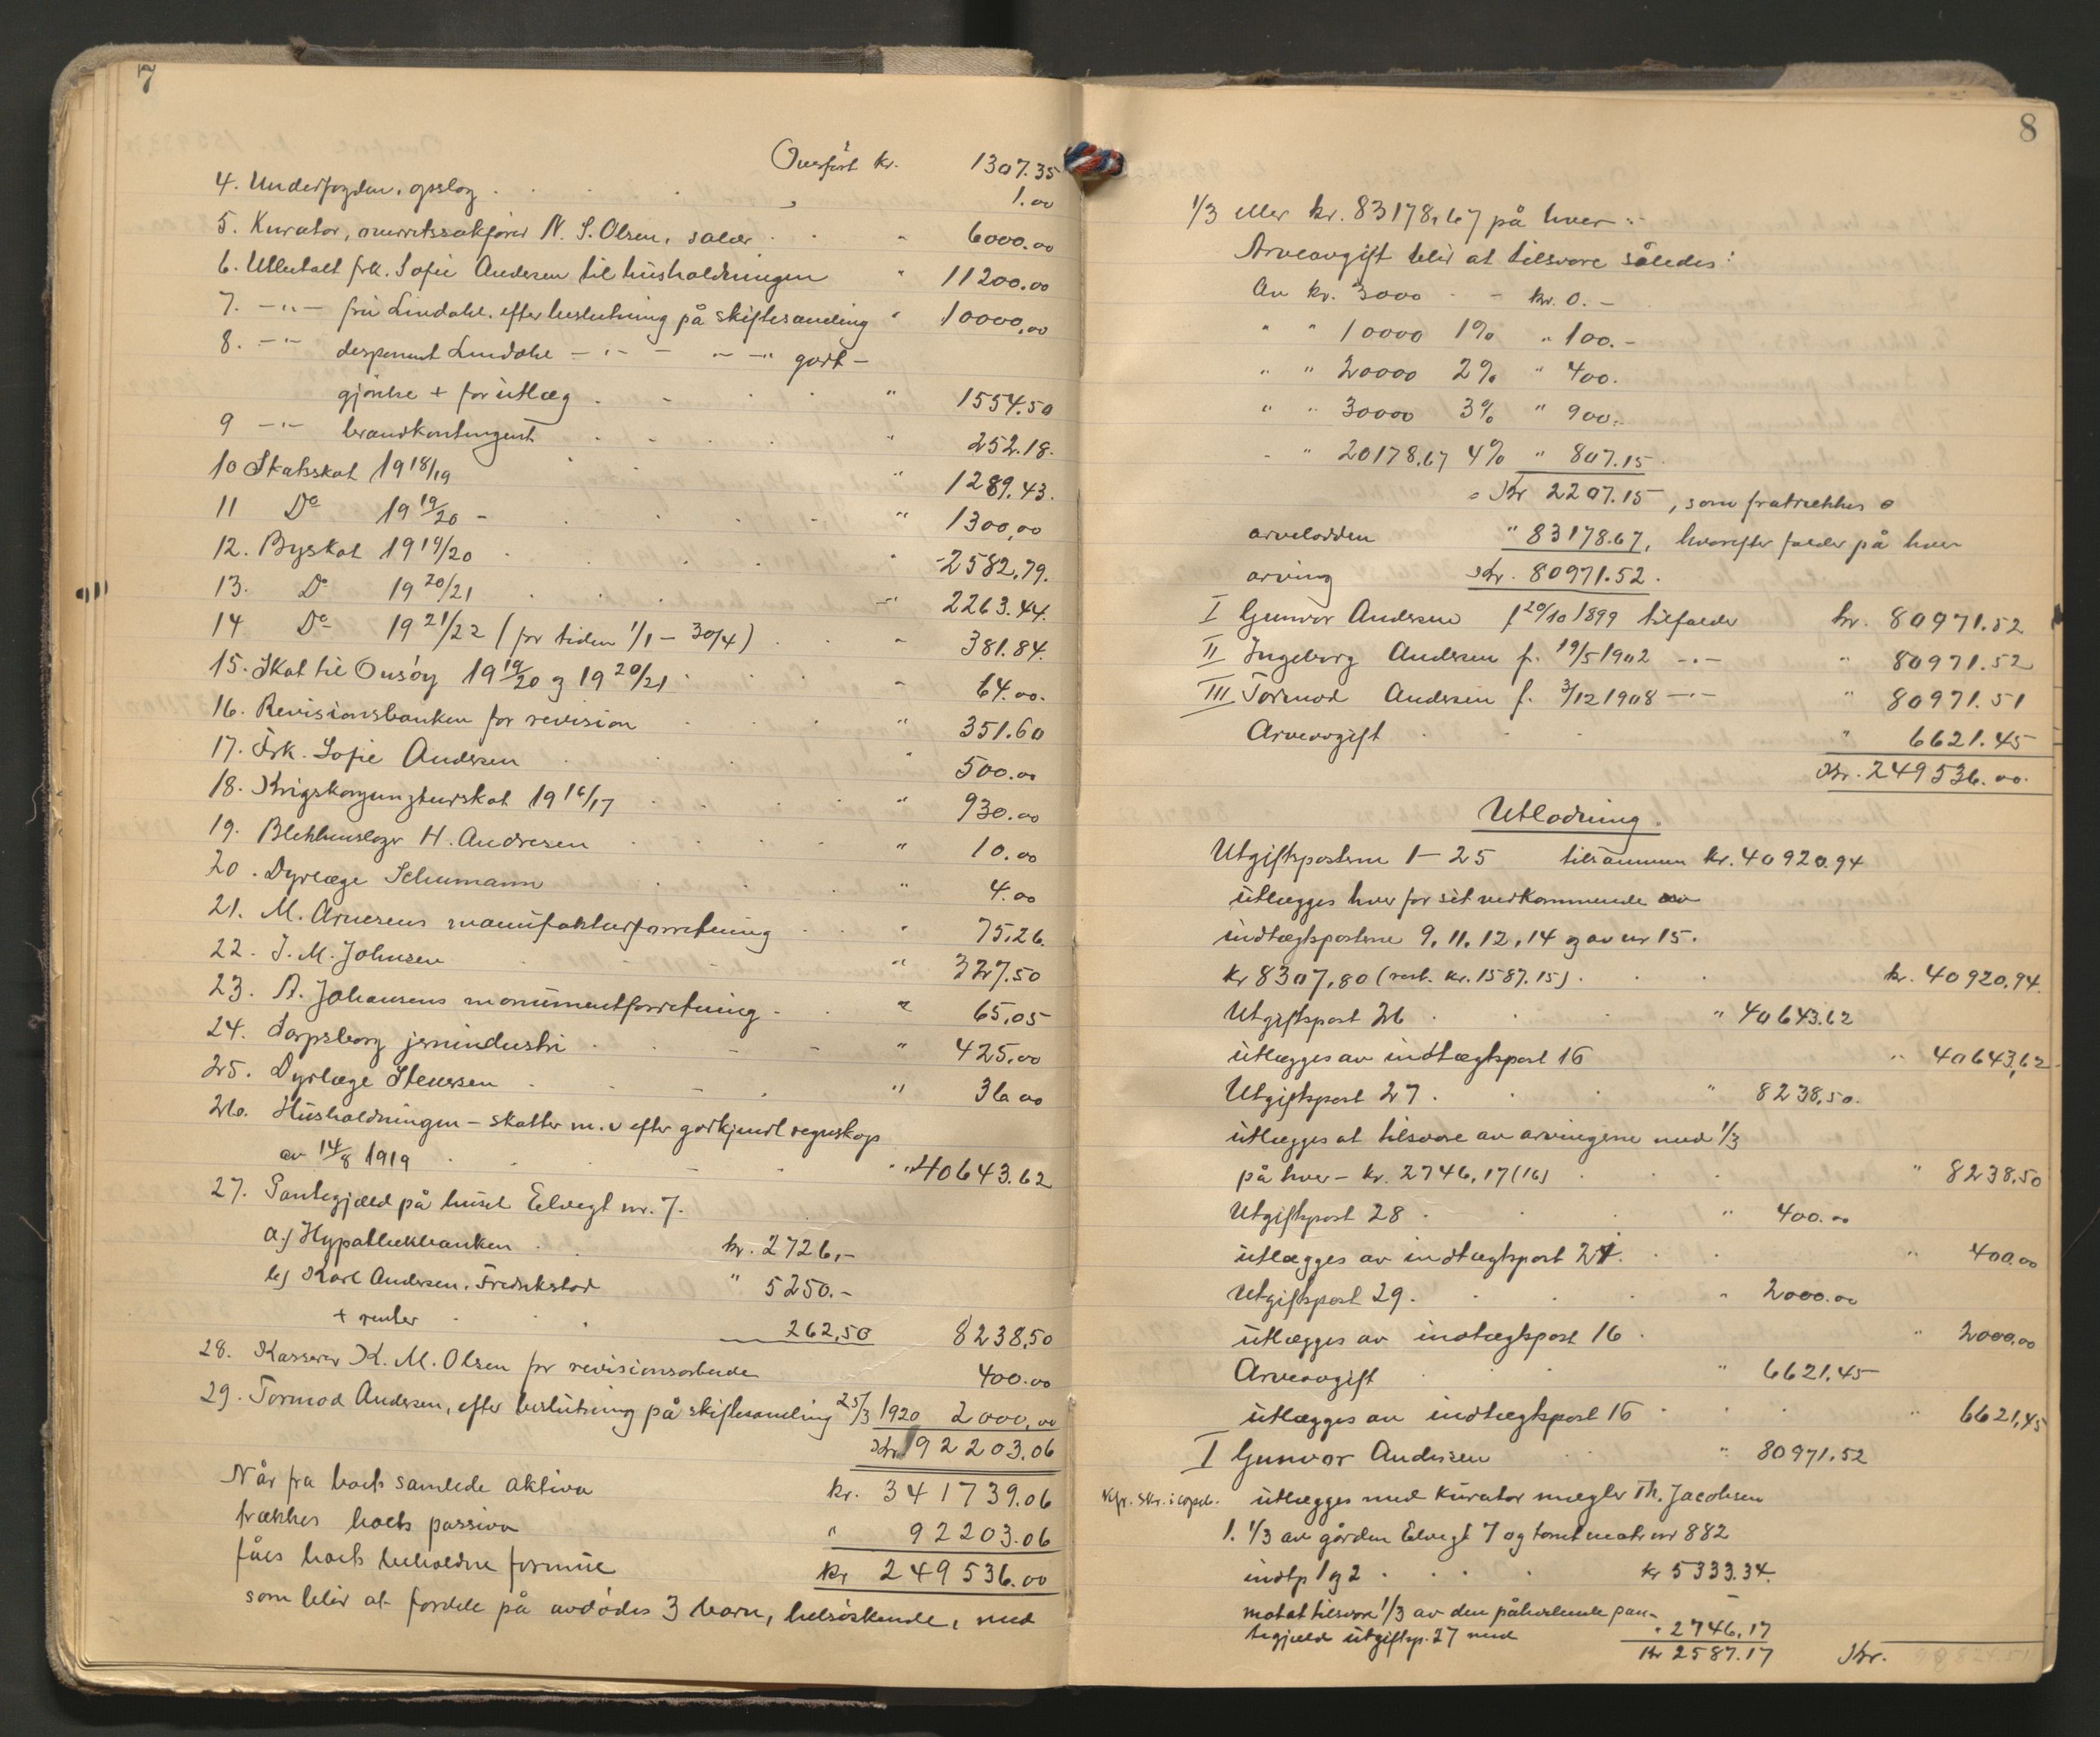 7
Overført kr. 1307.35
4. Underfogden, opslag . . . " 1.00
5. Kurator, overretssakfører N. S. Olsen, salær . . " 6000.00
6. Utbetalt frk. Sofie Andersen til husholdningen " 11200.00
7. -"- fru Lindahl, efter beslutning på skiftesamling " 10000,00
8. -"- disponent Lindahl -"- - "- -" godt-
gjørelse + for utlæg . - . . " 1554.50
9 -"- brandkontingent . - . . " 252.18.
10 Statsskat 1918/19 . " 1289.43.
11 Do 1919/20 - . . . - " 1300,00
12. Byskat 1919/20 . . . . " 2582,79.
13. Do 1920/21 . . . . -" 2263.44.
14 Do 1921/22 (for tiden 1/1 - 30/4) . . " 381.84.
15. Skat til Onsøy 1919/20 og 1920/21 . . . " 64.00.
16. Revisionsbanken for revision . . . " 351.60
17. Frk. Sofie Andersen . . . . " 500.00
18. Krigskonjunkturskat 1916/17 . . . . " 930.00
19. Blikkenslager H. Andresen . . . . " 10.00
20. Dyrlæge Schumann . . . " 4.00
21. M. Arnesens manufakturforretning . . " 75,26
22. J. M. Johnsen . . . . " 327.50
23. A. Johansens monumentforretning - . " 65,05
24. Sarpsborg jernindustri . . - - " 425,00
25. Dyrlæge Stenersen . . - . " 36.00
26. Husholdningen - skatter m. v efter godkjendt regnskap
av 14/8 1919 . . . - . " 40643.62
27. Pantegjæld på huset Elvegt nr. 7.
a) Hypothekbanken . . kr. 2726,-
b) Karl Andersen, Fredrikstad " 5250.-
+ renter . . 262,50 8238,50
28. Kasserer K. M. Olsen for revisionsarbeide 400.00
29. Tormod Andersen, efter beslutning på skiftesamling 25/3 1920 2000,00
Kr 92203.06
Når fra boets samlede aktiva kr. 341739.06
trækkes boets passiva " 92203.06
fåes boets beholdne formue kr 249536.00
som blir at fordele på avdødes 3 barn, helsøskende, med
8
1/3 eller kr. 83178,67 på hver :-
Arveavgift blir at tilsvare således:
Av kr. 3000 - - kr. 0.-
" " 10000 1% " 100.-
" " 20000 2% " 400.
" " 30000 3% " 900.-
" " 20178,67 4% " 807.15
= Kr 2207.15, som fratrækkes
arvelodden " 83178.67, hvorefter falder på hver
arving Kr. 80971.52.
I Gunvor Andersen f 20/10 1899 tilfalder kr. 80971.52
II Ingeborg Andersen f. 19/5 1902 -"- " 80971.52
III Tormod Andersen f. 3/12 1908 -"- " 80971.51
Arveavgift . . . " 6621.45
Kr. 249536.00.
Utlodning.
Utgiftsposterne 1-25 tilsammen kr. 40920.94
utlægges hver for sit vedkommende av
indtægtsposterne 9, 11, 12, 14 og av nr 15.
kr 8307,80 (rest. kr. 1587.15) . . . kr. 40920,94.
Utgiftspost 26 . . . " 40643.62
utlægges av indtægtspost 16 " 40643,62
Utgiftspost 27 . . . " 8238,50.
utlægges at tilsvare av arvingerne med 1/3
på hver - kr. 2746,17 (16) . . " 8238.50
Utgiftspost 28 . . . " 400.00
utlægges av indtægtspost 21. . . " 400.00
Utgiftspost 29. . . . " 2000.00
utlægges av indtægtspost 16 . . . " 2000,00
Arveavgift . . " 6621.45
utlægges av indtægtspost 16 . . . " 6621,45
I Gunvor Andersen . . " 80971.52
utlægges med kurator mægler Th. Jacobsen
1. 1/3 av gården Elvegt 7 og tomt matr nr 882
indtp 1 og 2 . . . kr 5333.34.
mot at tilsvare 1/3 av den påheftende pan-
tegjæld utgiftsp. 27 med " 2746.17
Kr 2587.17 Kr.